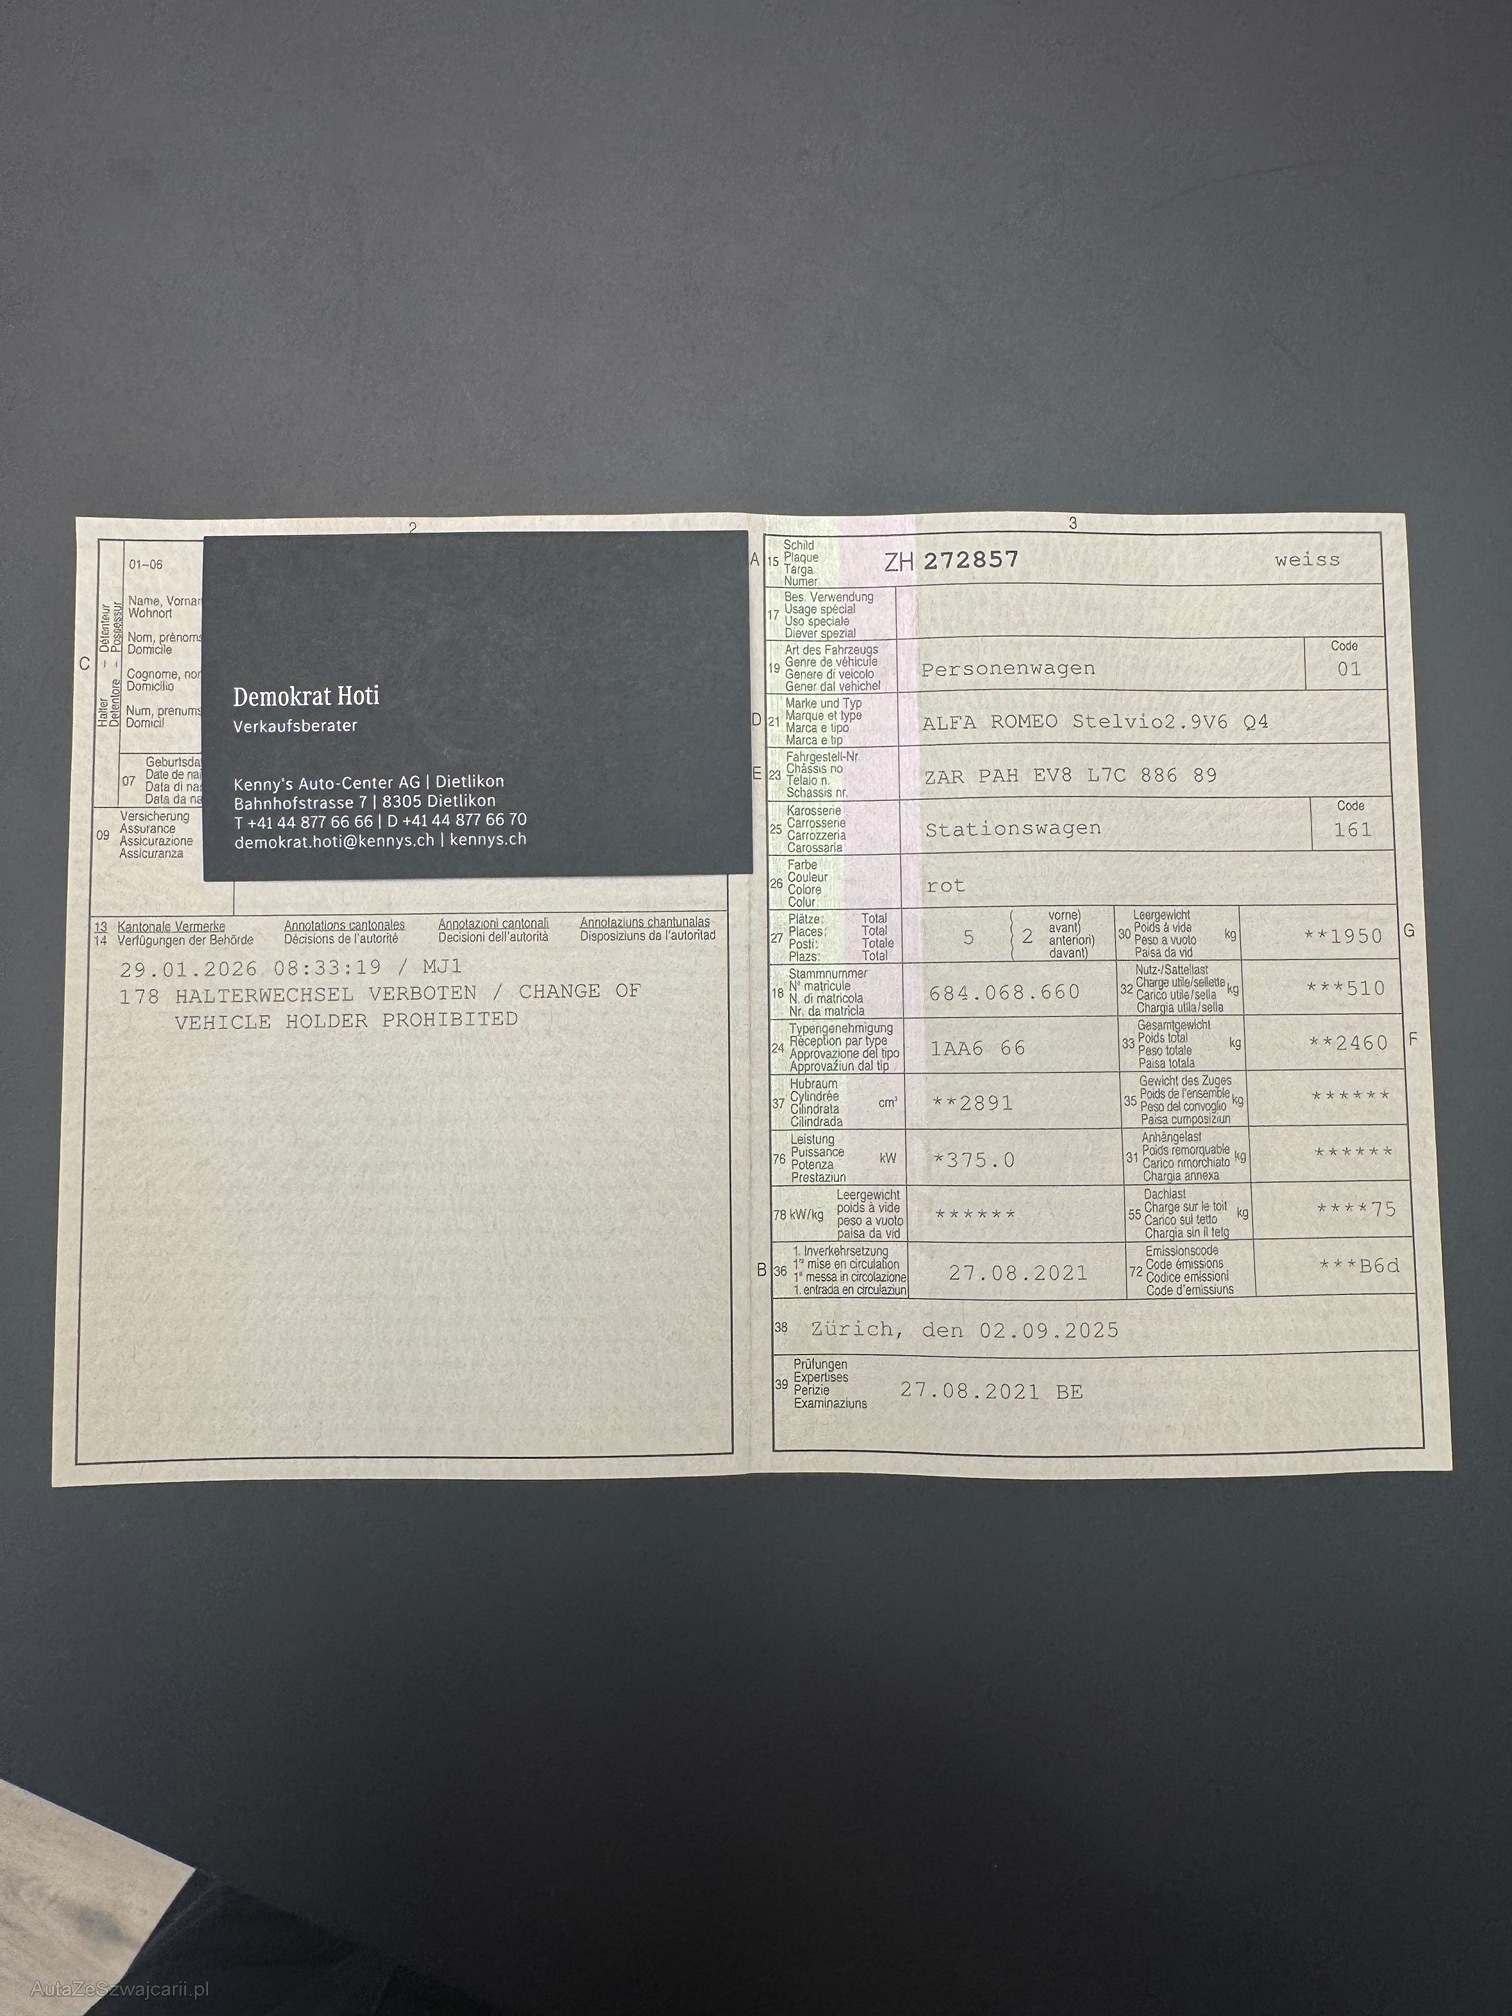 2
C
Halter – Détenteur
Detentore – Possessur
01–06
Name, Vornam
Wohnort
Nom, prénoms
Domicile
Cognome, nom
Domicilio
Num, prenums
Domicil
07
Geburtsda
Date de nai
Data di na
Data da na
09
Versicherung
Assurance
Assicurazione
Assicuranza
Demokrat Hoti
Verkaufsberater
Kenny's Auto-Center AG | Dietlikon
Bahnhofstrasse 7 | 8305 Dietlikon
T +41 44 877 66 66 | D +41 44 877 66 70
demokrat.hoti@kennys.ch | kennys.ch
13 Kantonale Vermerke Annotations cantonales Annotazioni cantonali Annotaziuns chantunalas
14 Verfügungen der Behörde Décisions de l'autorité Decisioni dell'autorità Disposiziuns da l'autoritad
29.01.2026 08:33:19 / MJ1
178 HALTERWECHSEL VERBOTEN / CHANGE OF
VEHICLE HOLDER PROHIBITED
3
A 15 Schild
Plaque
Targa
Numer
ZH 272857 weiss
17 Bes. Verwendung
Usage spécial
Uso speciale
Diever spezial
19 Art des Fahrzeugs
Genre de véhicule
Genere di veicolo
Gener dal vehichel
Personenwagen
Code
01
D 21 Marke und Typ
Marque et type
Marca e tipo
Marca e tip
ALFA ROMEO Stelvio2.9V6 Q4
E 23 Fahrgestell-Nr.
Châssis no
Telaio n.
Schassis nr.
ZAR PAH EV8 L7C 886 89
25 Karosserie
Carrosserie
Carrozzeria
Carossaria
Stationswagen
Code
161
26 Farbe
Couleur
Colore
Colur
rot
27 Plätze: Total
Places: Total
Posti: Totale
Plazs: Total
5 ( 2 vorne)
avant)
anteriori)
davant)
30 Leergewicht
Poids à vide
Peso a vuoto
Paisa da vid
kg
**1950
G
18 Stammnummer
N° matricule
N. di matricola
Nr. da matricla
684.068.660
32 Nutz-/Sattellast
Charge utile/sellette
Carico utile/sella
Chargia utila/sella
kg
***510
24 Typengenehmigung
Réception par type
Approvazione del tipo
Approvaziun dal tip
1AA6 66
33 Gesamtgewicht
Poids total
Peso totale
Paisa totala
kg
**2460
F
37 Hubraum
Cylindrée
Cilindrata
Cilindrada
cm³
**2891
35 Gewicht des Zuges
Poids de l'ensemble
Peso del convoglio
Paisa cumposiziun
kg
******
76 Leistung
Puissance
Potenza
Prestaziun
kW
*375.0
31 Anhängelast
Poids remorquable
Carico rimorchiato
Chargia annexa
kg
******
78 kW/kg
Leergewicht
poids à vide
peso a vuoto
paisa da vid
******
55 Dachlast
Charge sur le toit
Carico sul tetto
Chargia sin il tetg
kg
****75
B 36 1. Inverkehrsetzung
1re mise en circulation
1a messa in circolazione
1. entrada en circulaziun
27.08.2021
72 Emissionscode
Code émissions
Codice emissioni
Code d'emissiuns
***B6d
38 Zürich, den 02.09.2025
39 Prüfungen
Expertises
Perizie
Examinaziuns
27.08.2021 BE
AutaZeSzwajcarii.pl